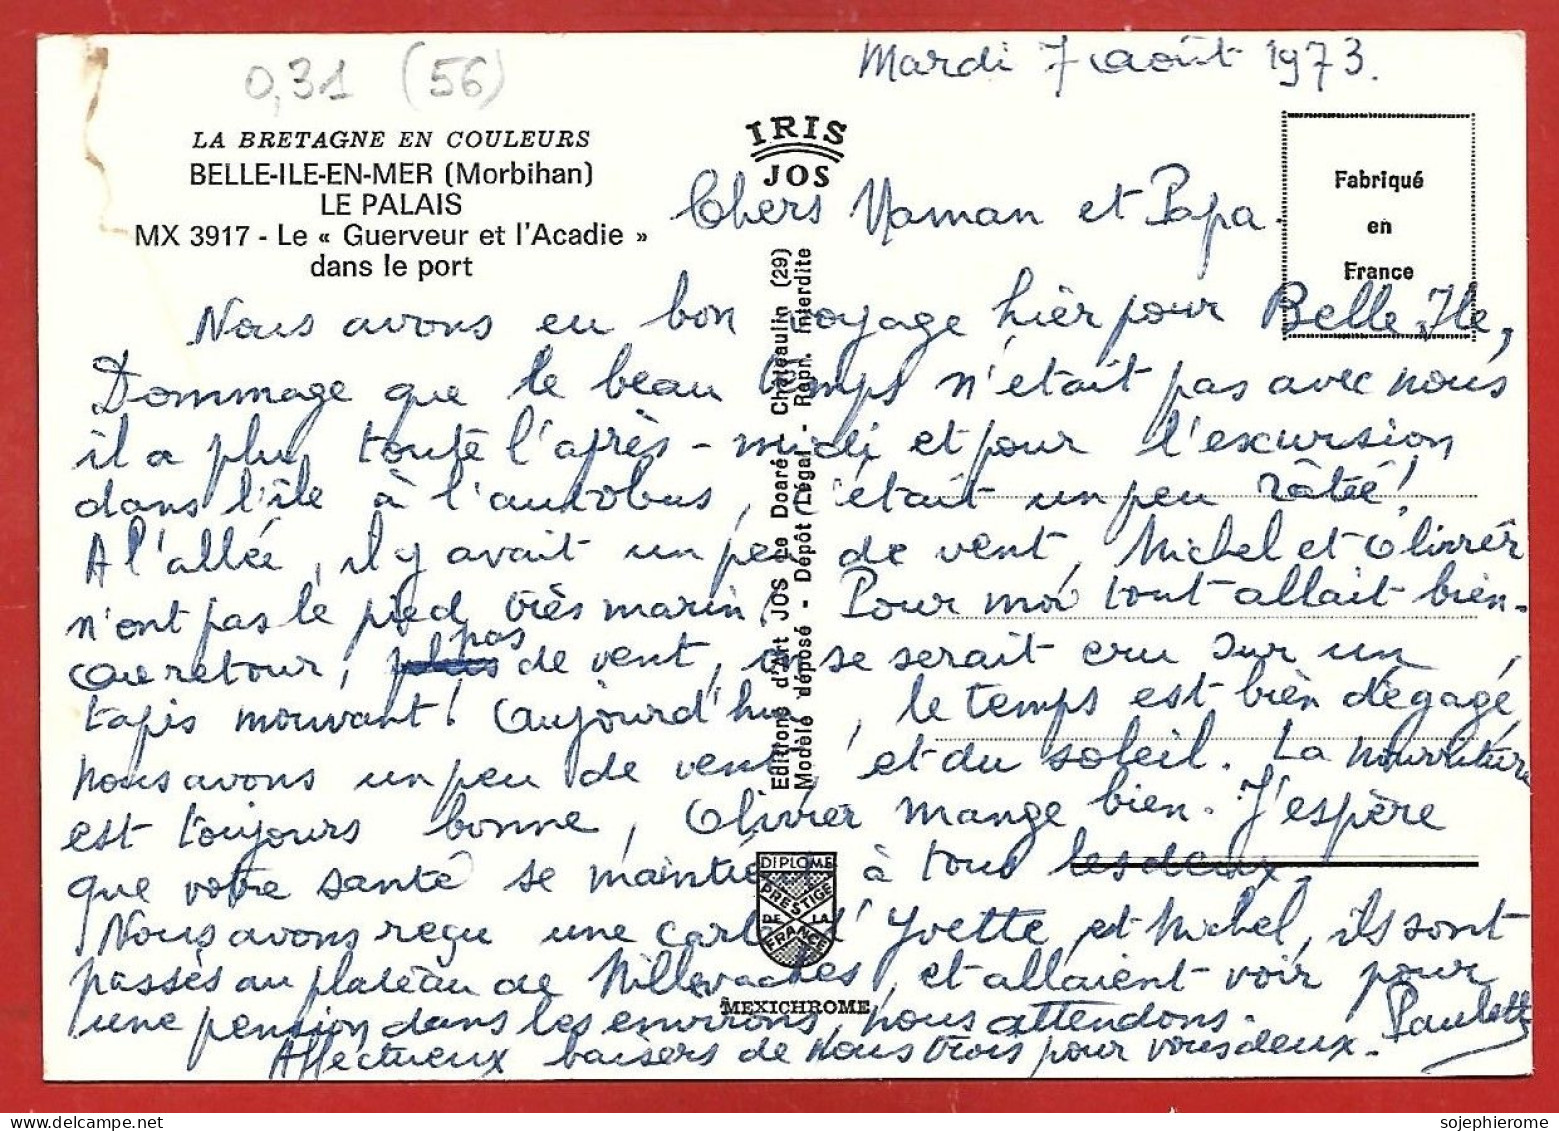 Mardi 7 août 1973.
0,31 (56)
LA BRETAGNE EN COULEURS
BELLE-ILE-EN-MER (Morbihan)
LE PALAIS
MX 3917 - Le « Guerveur et l'Acadie »
dans le port
IRIS
JOS
Fabriqué
en
France
Chers Maman et Papa.
Nous avons eu bon voyage hier pour Belle-Ile,
Dommage que le beau temps n'était pas avec nous
il a plu toute l'après-midi et pour l'excursion
dans l'île à l'autobus, c'était un peu râtée!
A l'allée, il y avait un peu de vent, Michel et Olivier
n'ont pas le pied très marin, Pour moi tout allait bien.
au retour, pas de vent, on se serait cru sur un
tapis mouvant! aujourd'hui, le temps est bien dégagé,
nous avons un peu de vent, et du soleil. La nourriture
est toujours bonne, Olivier mange bien. J'espère
que votre santé se maintient à tous les deux.
Nous avons reçu une carte d'Yvette et Michel, ils sont
passés au plateau de Millevaches, et allaient voir pour
une pension dans les environs, nous attendons.
Affectueux baisers de nous trois pour vous deux. Paulette
Editions d'Art JOS Le Doaré - Chateaulin (29)
Modèle déposé - Dépôt Légal - Repr. Interdite
DIPLOME
PRESTIGE
DE LA
FRANCE
MEXICHROME
sojephierome